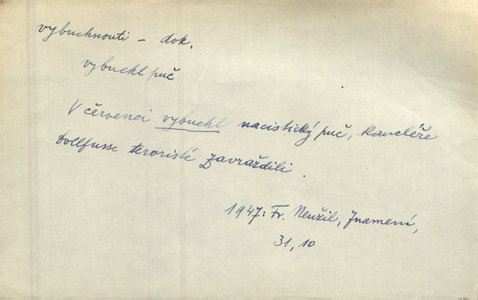 vybuchnouti - dok.
vybuchl puč
V červenci vybuchl nacistický puč, kancléře
Dollfusse teroristé zavraždili.
1947: Fr. Neužil, Znamení,
31, 10